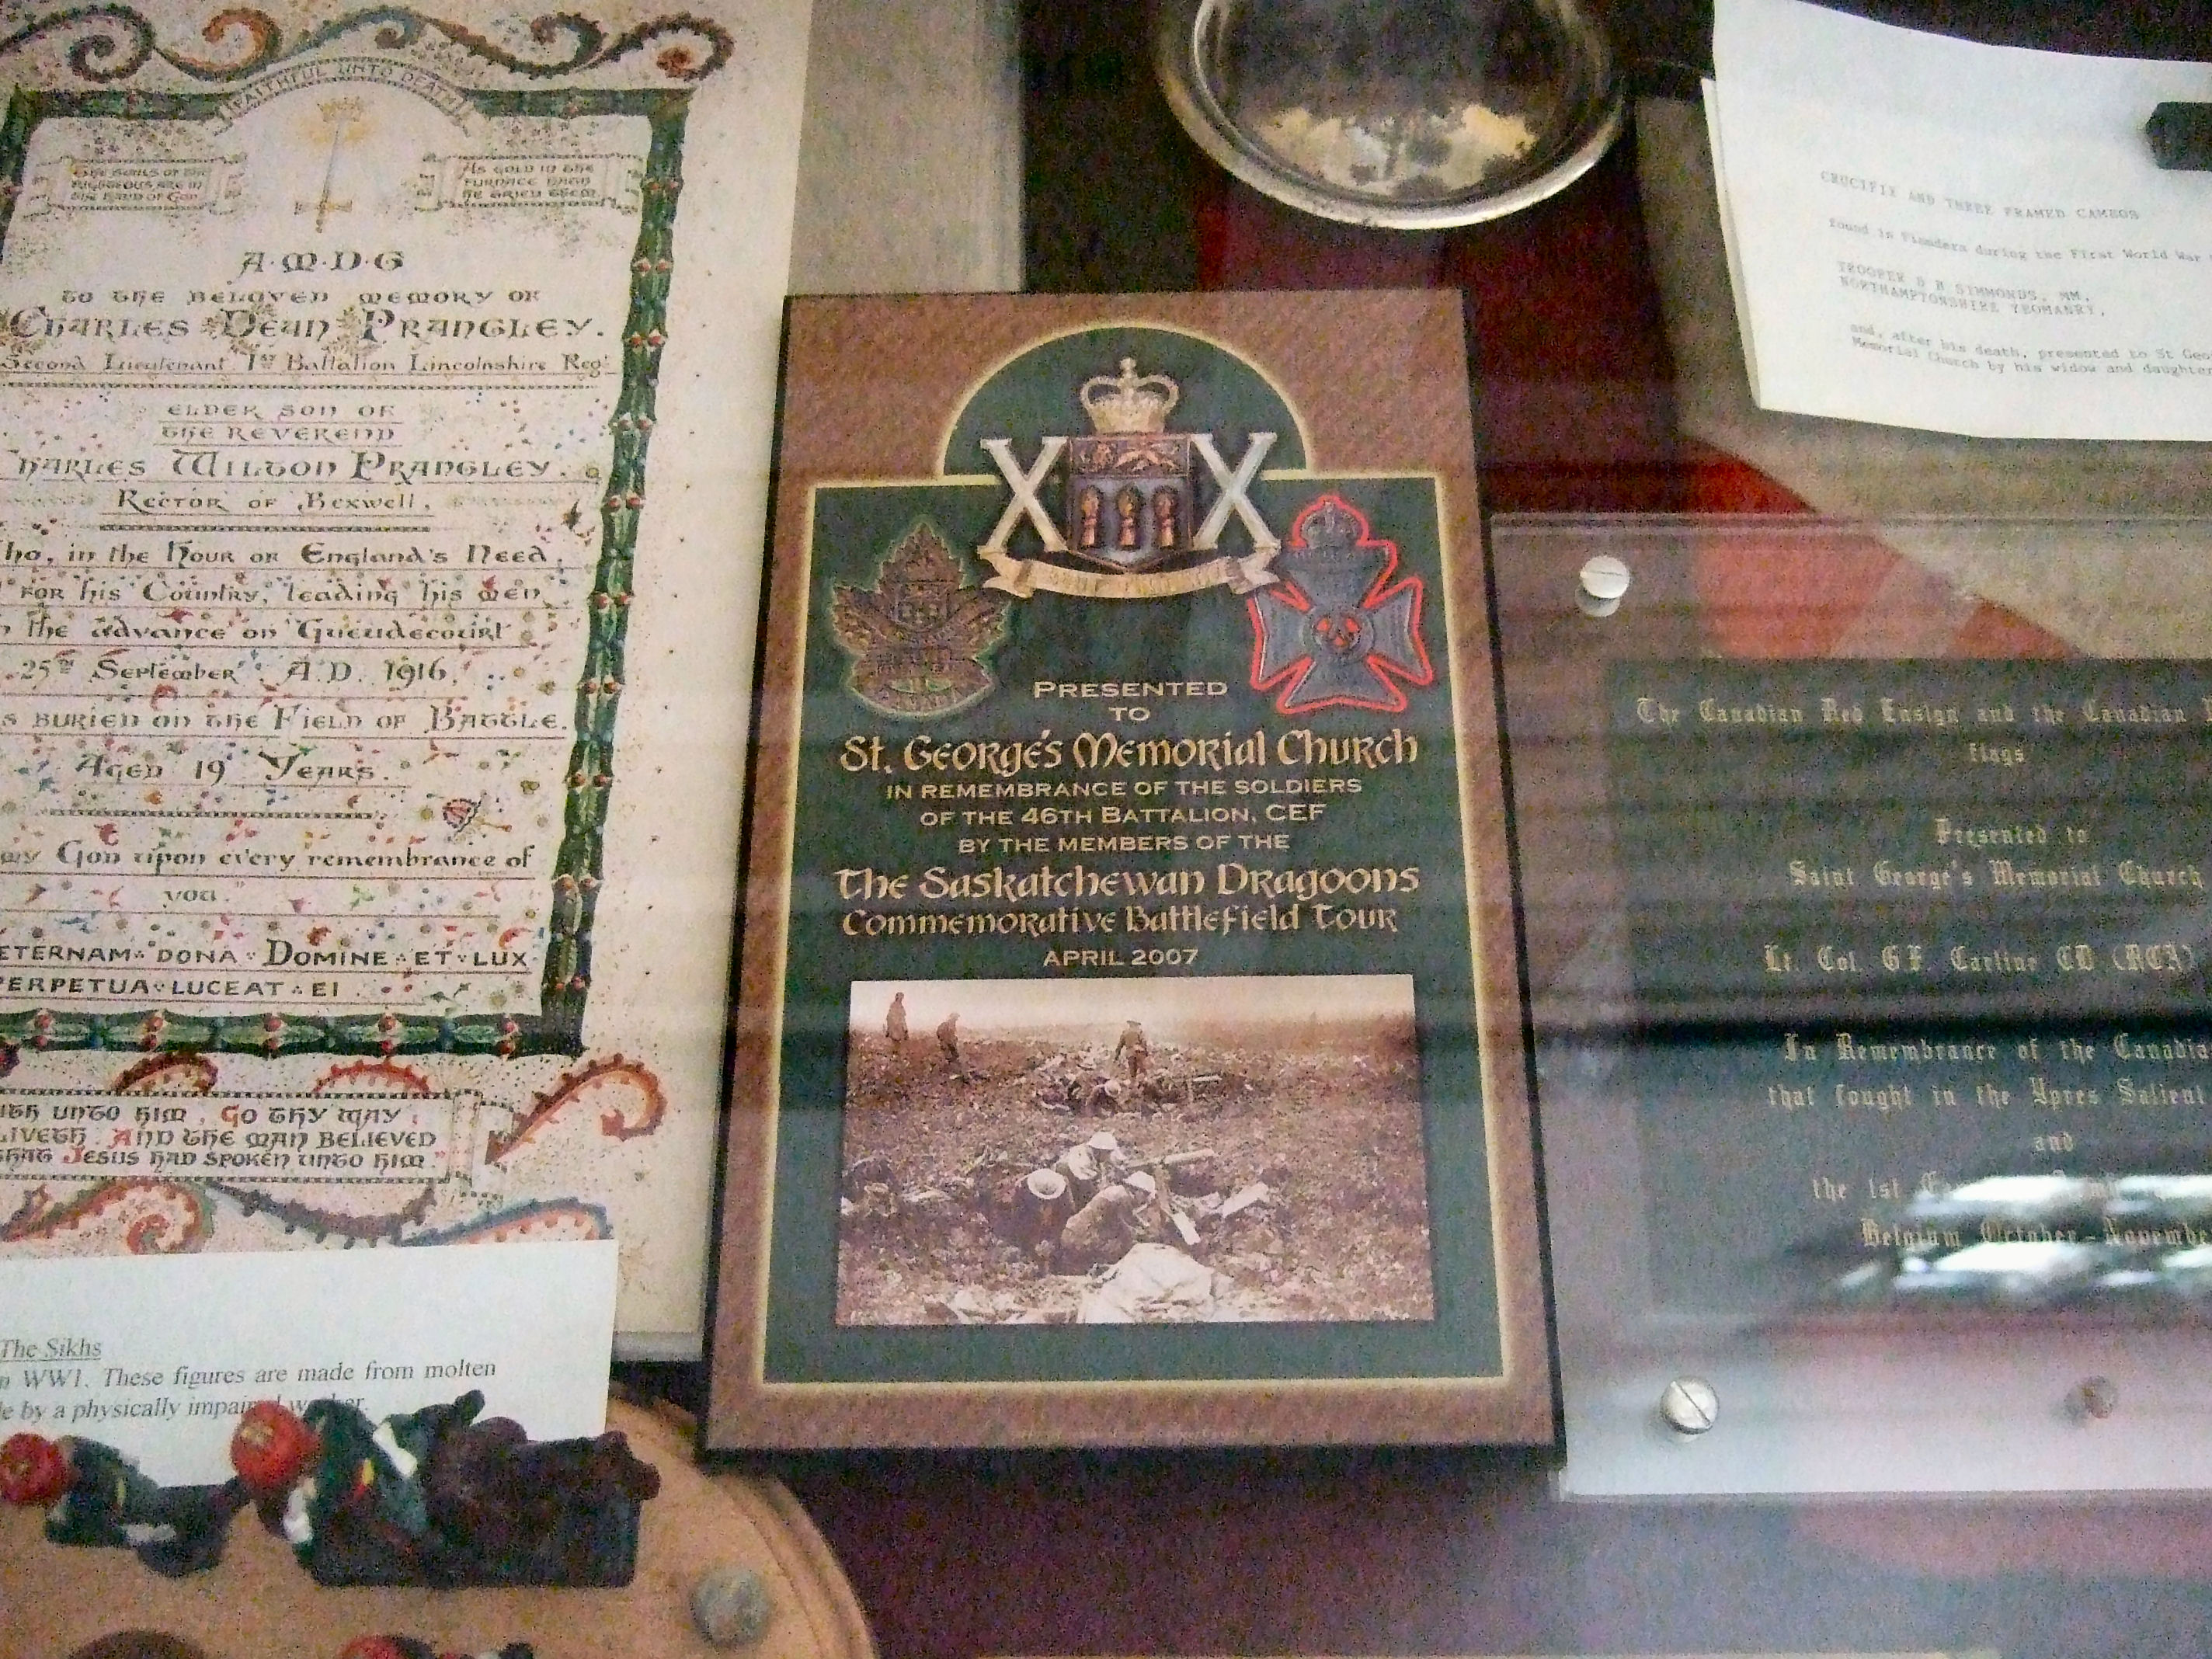 FAITHFUL UNTO DEATH
THE SOULS OF THE
RIGHTEOUS ARE IN
THE HAND OF GOD
AS GOLD IN THE
FURNACE HATH
HE TRIED THEM
A·M·D·G
TO THE BELOVED MEMORY OF
CHARLES DEAN PRANGLEY.
Second Lieutenant 1st Battalion Lincolnshire Regt
ELDER SON OF
THE REVEREND
CHARLES WILTON PRANGLEY.
RECTOR OF BEXWELL,
who, in the Hour of England's Need,
for his Country, leading his men
the advance on Gueudecourt
25th September A.D. 1916,
S BURIED ON THE FIELD OF BATTLE.
AGED 19 YEARS.
my God upon every remembrance of
you."
ETERNAM DONA DOMINE ET LUX
PERPETUA LUCEAT EI
UNTO HIM, GO THY WAY,
LIVETH. AND THE MAN BELIEVED
THAT JESUS HAD SPOKEN UNTO HIM."
The Sikhs
n WW1. These figures are made from molten
by a physically
XX
PRESENTED
TO
St. George's Memorial Church
IN REMEMBRANCE OF THE SOLDIERS
OF THE 46TH BATTALION, CEF
BY THE MEMBERS OF THE
The Saskatchewan Dragoons
Commemorative Battlefield Tour
APRIL 2007
CRUCIFIX AND THREE FRAMED CAMEOS
found in Flanders during the First World War
TROOPER D B SIMMONDS, MM,
NORTHAMPTONSHIRE YEOMANRY,
and, after his death, presented to St Geo
Memorial Church by his widow and daughter
The Canadian Red Ensign and the Canadian
flags
Presented to
Saint George's Memorial Church
Lt. Col. G F Carline CD (RCA)
In Remembrance of the Canadia
that fought in the Ypres Salient
and
the 1st
Belgium October - Novembe